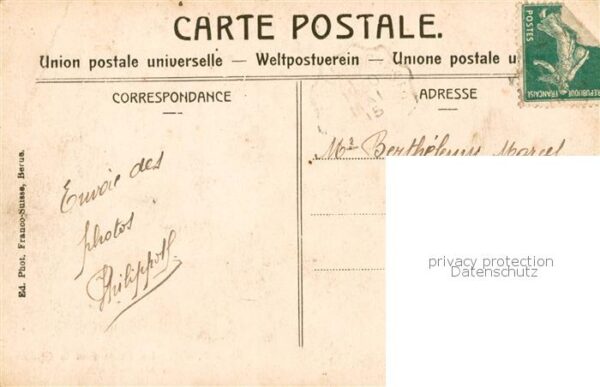 CARTE POSTALE.
Union postale universelle — Weltpostverein — Unione postale u
POSTES
REPUBLIQUE FRANCAISE
CORRESPONDANCE
ADRESSE
Envoie des
photos
Philippoth
Mr Berthélemy Marcel
privacy protection
Datenschutz
Ed. Phot. Franco-Suisse, Berne.